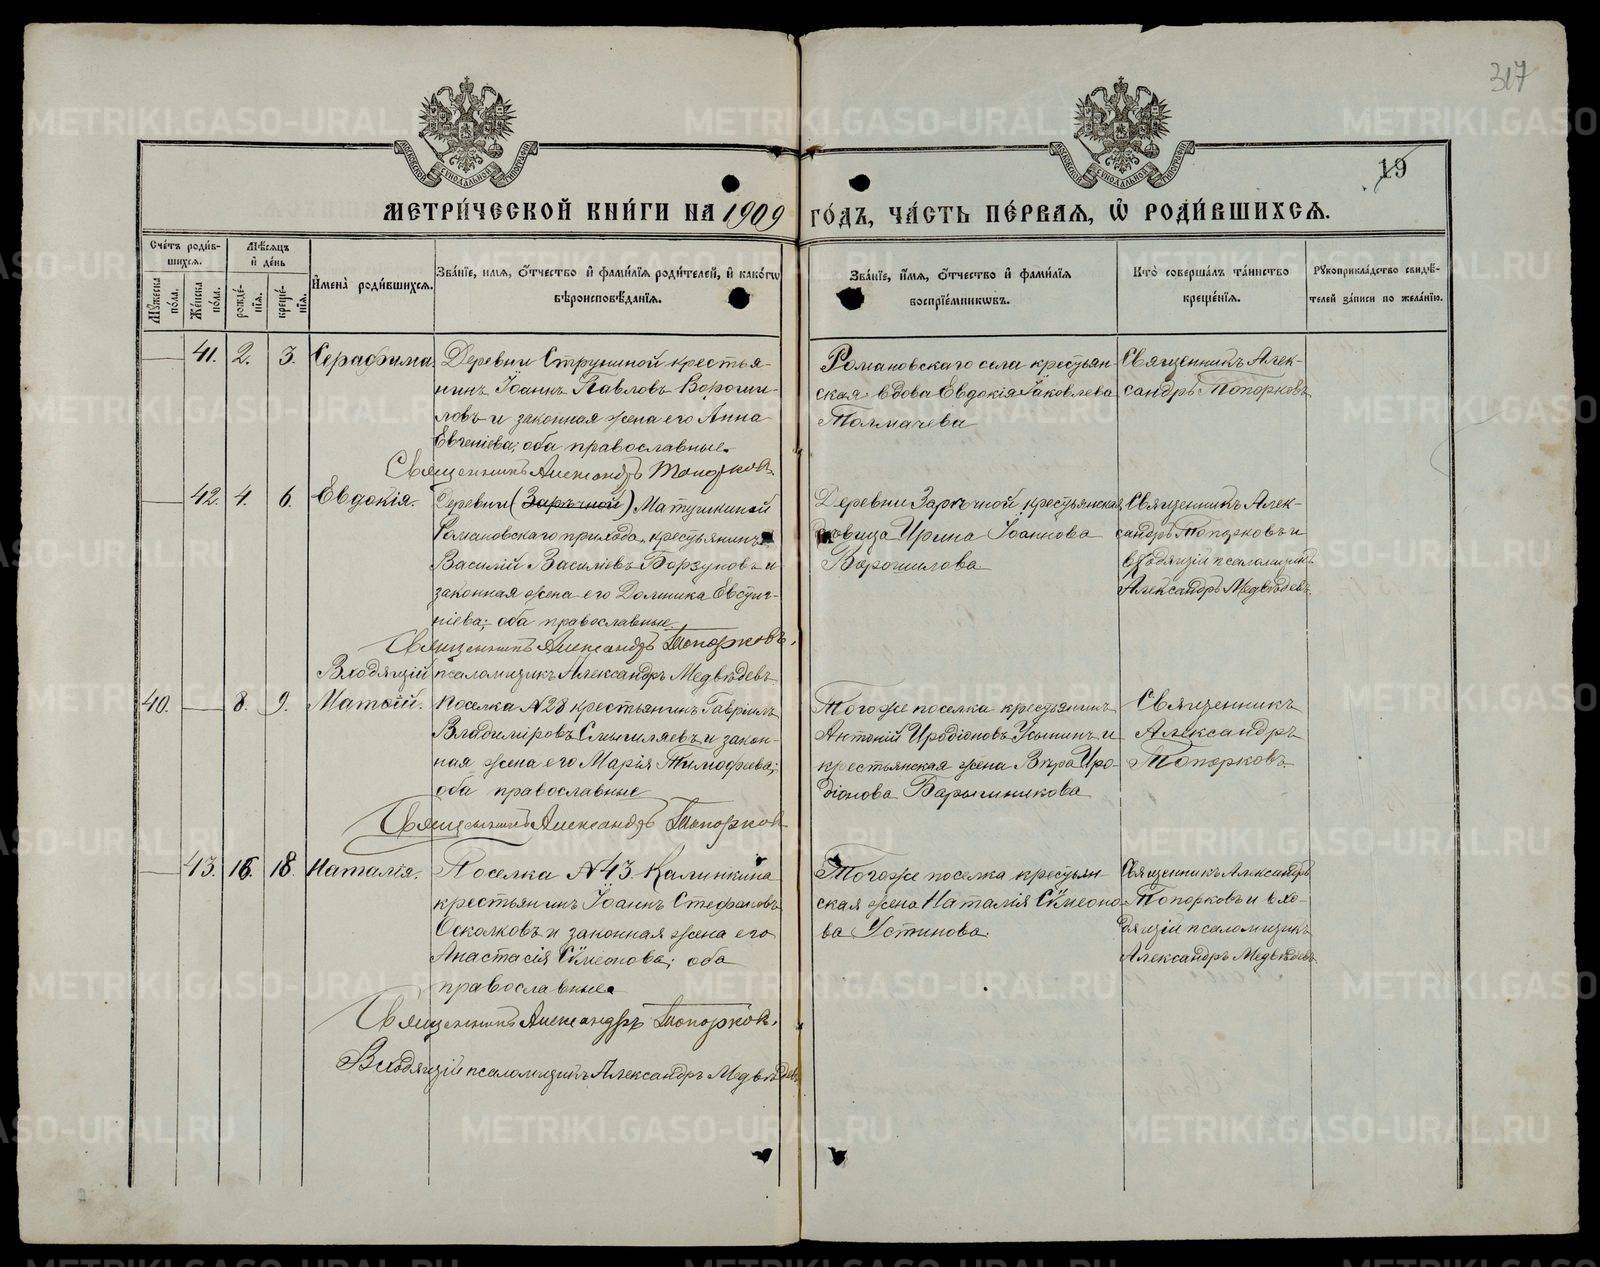 317
19
МЕТРИ́ЧЕСКОЙ КНИ́ГИ НА 1909 ГО́ДЪ, ЧА́СТЬ ПЕ́РВАЯ, Ѽ РОДИ́ВШИХСЯ.
Сче́тъ роди́вшихся.
Мꙋ́жеска по́ла.
Же́нска по́ла.
Мѣ́сяцъ и҆ де́нь
рожде́нїя.
креще́нїя.
И҆мена̀ роди́вшихся.
Зва́нїе, имя, ѻ҆́тчество и҆ фами́лїя роди́телей, и҆ како́гѡ
вѣроисповѣ́данїя.
Зва́нїе, и҆́мя, ѻ҆́тчество и҆ фами́лїя
воспрїе́мникѡвъ.
Кто̀ соверша́лъ та́инство
креще́нїя.
Рꙋкоприкла́дство свидѣ́-
телей за́писи по жела́нїю.
41. 2. 3. Серафима
Деревни Струниной крестья-
нинъ Іоаннъ Павловъ Вороши-
ловъ и законная жена его Анна
Евгеніева; оба православные.
Священникъ Александръ Топорковъ
Романовскаго села крестьян-
ская вдова Евдокія Іаковлева
Толмачева
Священникъ Алек-
сандръ Топорковъ
42. 4. 6. Евдокія.
Деревни (Зарѣчной) Матушкиной
Романовскаго прихода, крестьянинъ
Василій Василіевъ Борзуновъ и
законная жена его Домника Евсуг-
ніева; оба православные
Священникъ Александръ Топорковъ.
Входящій псаломщикъ Александръ Медвѣдевъ
Деревни Зарѣчной крестьянская
дѣвица Ирина Іоаннова
Ворошилова
Священникъ Алек-
сандръ Топорковъ и
входящій псаломщикъ
Александръ Медвѣдевъ
40. 8. 9. Матѳій.
Поселка №28 крестьянинъ Гавріилъ
Владиміровъ Смышляевъ и закон-
ная жена его Марія Тимофеева;
оба православные
Священникъ Александръ Топорков
Того же поселка крестьянинъ
Антоній Иродіоновъ Усынинъ и
крестьянская жена Вѣра Иро-
діонова Барышникова
Священникъ
Александръ
Топорковъ
43. 16. 18. Наталія.
Поселка №43. Калинкина
крестьянинъ Іоаннъ Стефановъ
Осколковъ и законная жена его
Анастасія Сѵмеонова; оба
православные
Священникъ Александръ Топорковъ.
Входящій псаломщикъ Александръ Медвѣдевъ
Того же поселка крестьян-
ская жена Наталія Сѵмеоно-
ва Устинова.
Священникъ Александръ
Топорковъ и вхо-
дящій псаломщикъ
Александръ Медвѣдевъ
METRIKI.GASO-URAL.RU